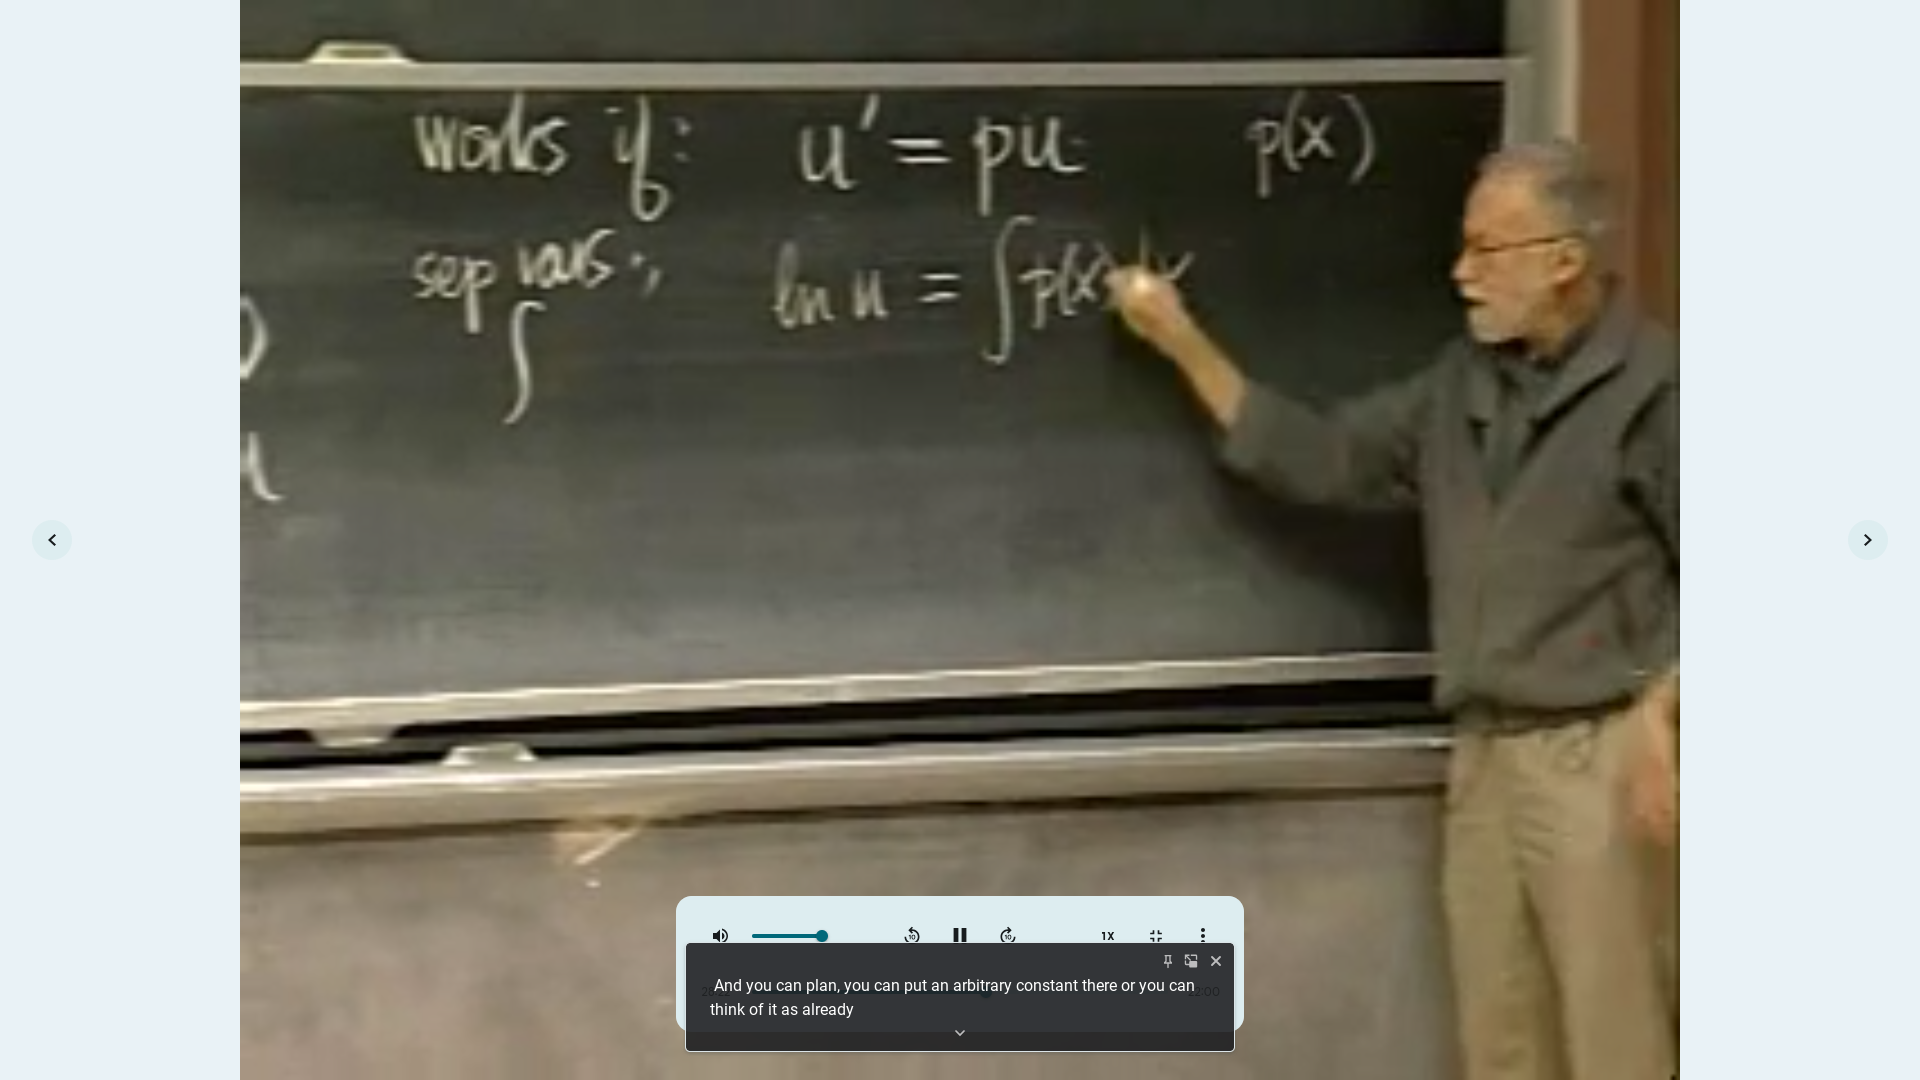 works if: u' = pu p(x)
sep vars:, ln u = ∫p(x) dx
∫
u
1X
And you can plan, you can put an arbitrary constant there or you can
think of it as already